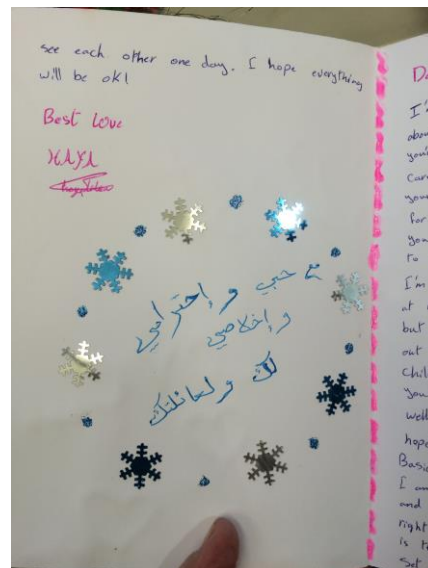 see each other one day. I hope everything
will be ok!
Best Love
HAYA
مع حبي و إحترامي
و إخلاصي
لك و لعائلتك
I'm
abou
you'
Car
your
for
you
to
I'm
at
but
out
Chil
you
well
hope
Basi
I am
and
right
is t
Set